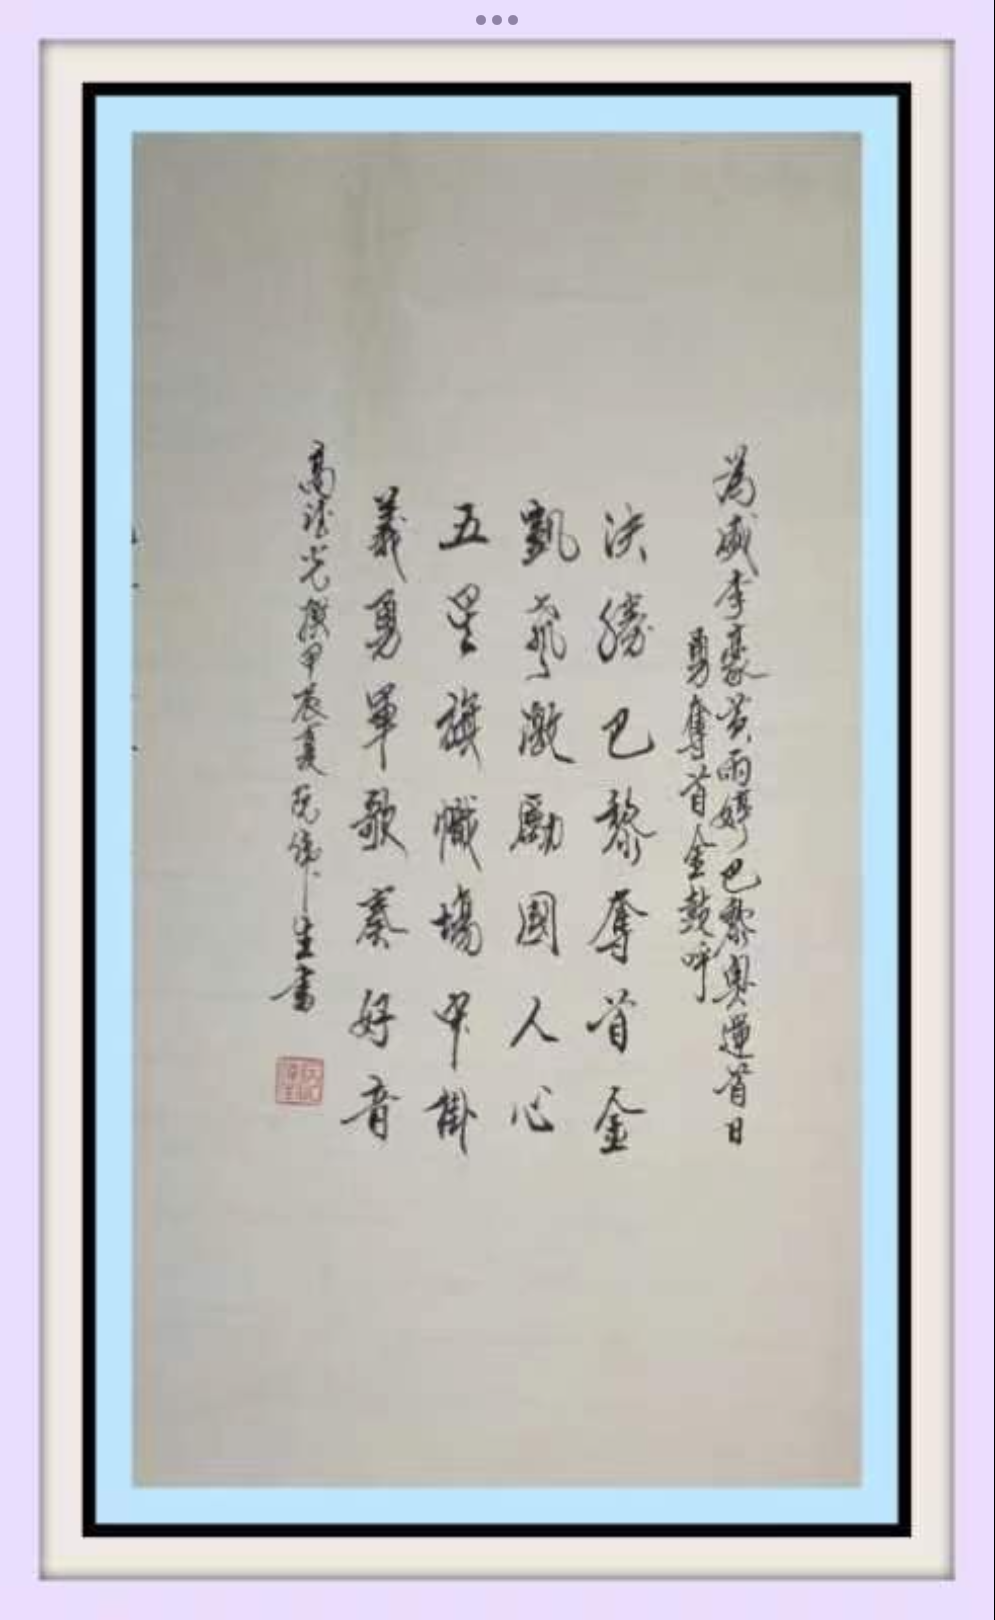 為盛李豪黃雨婷巴黎奧運首日
勇奪首金鼓呼
決勝巴黎奪首金
凱聲激勵國人心
五星旗幟場中掛
義勇軍歌奏好音
高潮光撰甲辰夏阮偉生書